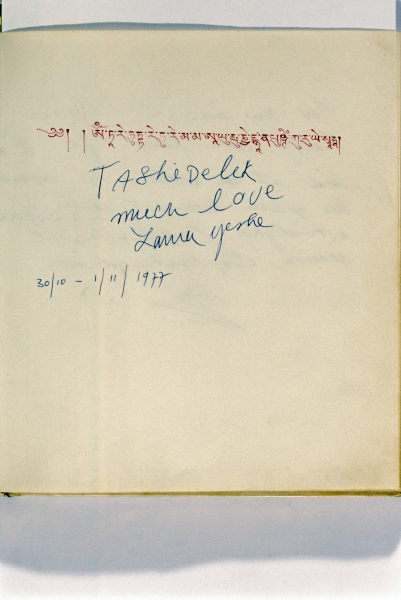 ༄། །ཨོཾ་ཏཱ་རེ་ཏུཏྟཱ་རེ་ཏུ་རེ་མ་མ་ཨཱ་ཡུ་པུ་ཎྱེ་ཛྙཱ་ན་པུཥྚིཾ་ཀུ་རུ་ཡེ་སྭཱ་ཧཱ།
TAShi Delek
much love
Lama yeshe
30/10 – 1/11/1977